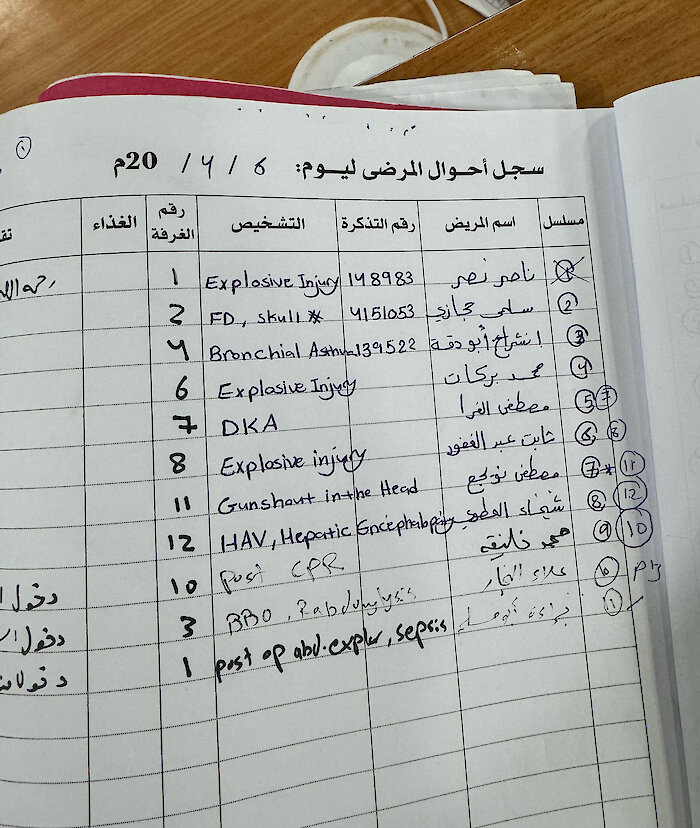 سجل أحوال المرضى ليوم: 6 / 4 / 20م
مسلسل اسم المريض رقم التذكرة التشخيص رقم الغرفة الغذاء
1 ناصر نصر 148983 Explosive Injury 1
2 سلمى حجازي 4151053 FD, skull # 2
3 انشراح أبو دقة 139522 Bronchial Asthma 4
4 محمد بركات Explosive Injury 6
5 7 مصطفى الفرا DKA 7
6 8 ثابت عبد الغفور Explosive injury 8
7 11 مصطفى Gunshout in the Head 11
8 12 شيماء HAV, Hepatic Encephalopathy 12
9 10 محمد post CPR 10
10 علاء النجار BBO, Rabdomylysis 3
11 post op abd. explor, sepsis 1
دخول
دخول